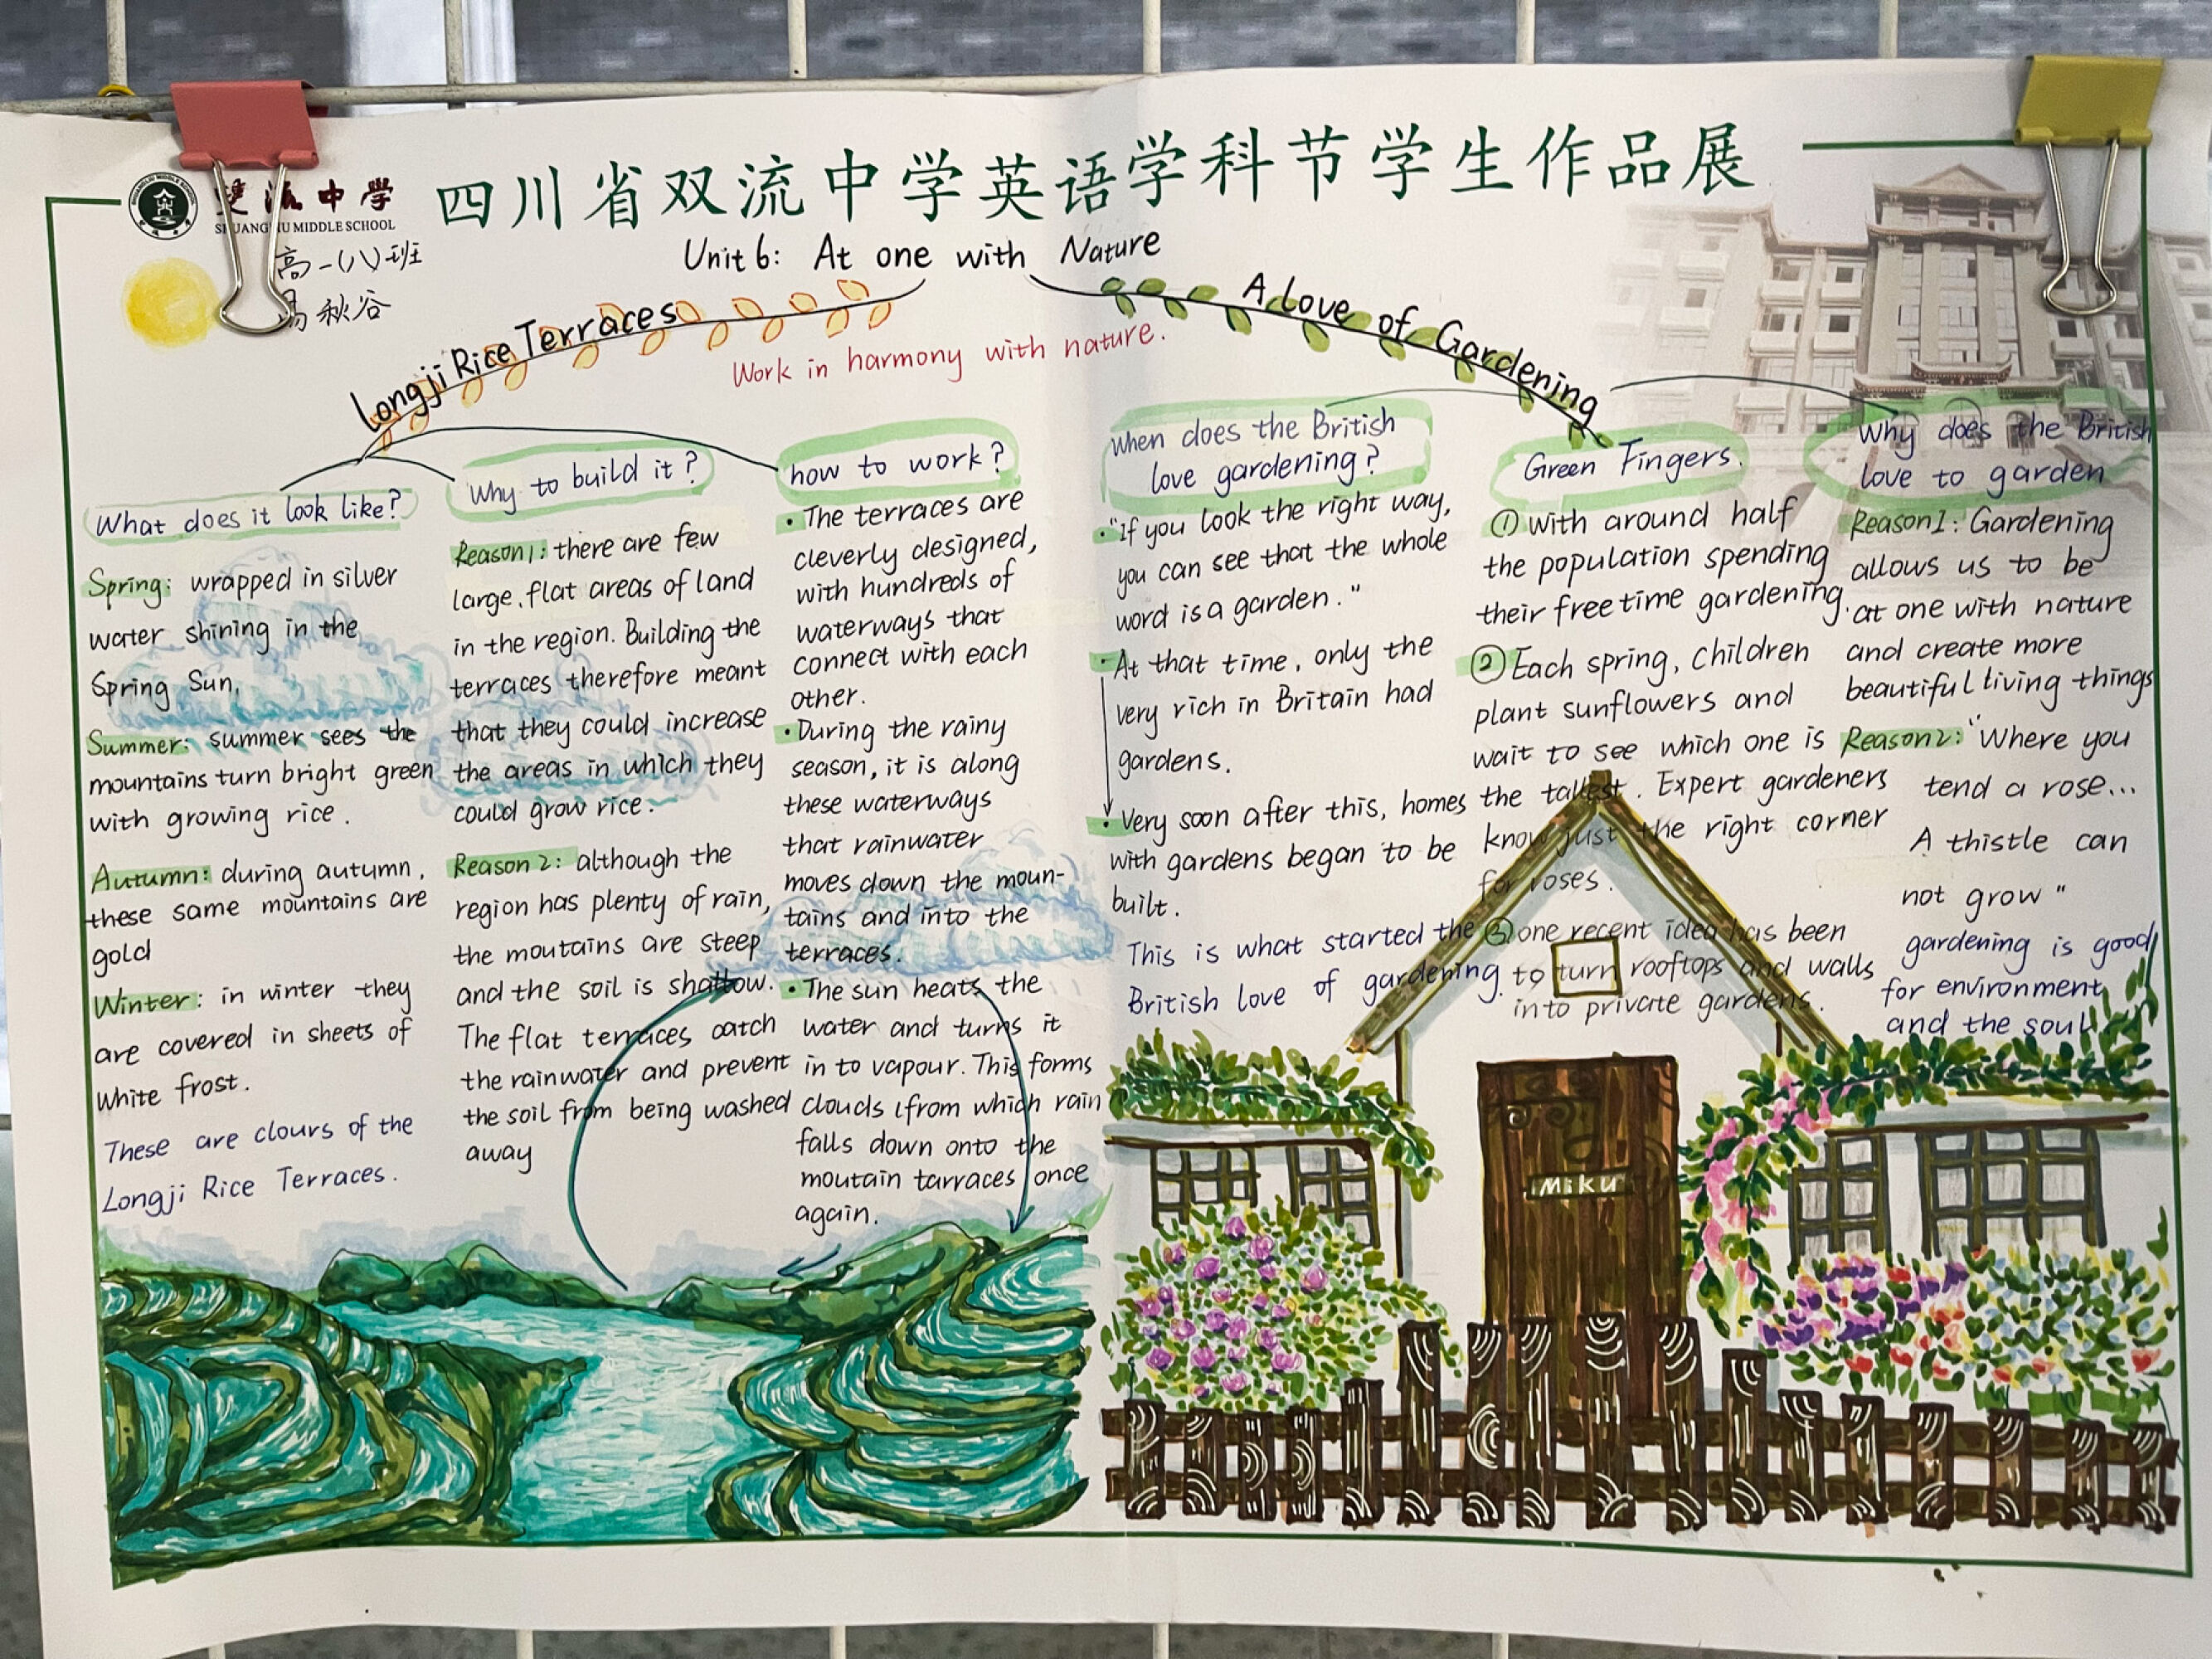 雙流中学
SHUANGLIU MIDDLE SCHOOL
四川省双流中学英语学科节学生作品展
高一(八)班
秋谷
Unit 6: At one with Nature
Longji Rice Terraces
Work in harmony with nature.
A Love of Gardening
What does it look like?
Spring: wrapped in silver
water shining in the
Spring Sun.
Summer: summer sees the
mountains turn bright green
with growing rice.
Autumn: during autumn,
these same mountains are
gold
Winter: in winter they
are covered in sheets of
white frost.
These are clours of the
Longji Rice Terraces.
Why to build it?
Reason1: there are few
large, flat areas of land
in the region. Building the
terraces therefore meant
that they could increase
the areas in which they
could grow rice.
Reason 2: although the
region has plenty of rain,
the moutains are steep
and the soil is shallow.
The flat terraces catch
the rainwater and prevent
the soil from being washed
away
how to work?
• The terraces are
cleverly designed,
with hundreds of
waterways that
connect with each
other.
• During the rainy
season, it is along
these waterways
that rainwater
moves down the moun-
tains and into the
terraces.
• The sun heats the
water and turns it
in to vapour. This forms
clouds (from which rain
falls down onto the
moutain tarraces once
again.
when does the British
love gardening?
• "If you look the right way,
you can see that the whole
word is a garden."
• At that time, only the
very rich in Britain had
gardens.
• Very soon after this, homes
with gardens began to be
built.
This is what started the
British love of gardening.
Green Fingers.
① with around half
the population spending
their free time gardening.
② Each spring, children
plant sunflowers and
wait to see which one is
the tallest. Expert gardeners
know just the right corner
for roses.
③ one recent idea has been
to turn rooftops and walls
into private gardens.
Why does the British
love to garden
Reason1: Gardening
allows us to be
at one with nature
and create more
beautiful living things
Reason2: "Where you
tend a rose...
A thistle can
not grow"
gardening is good
for environment
and the soul
Miku